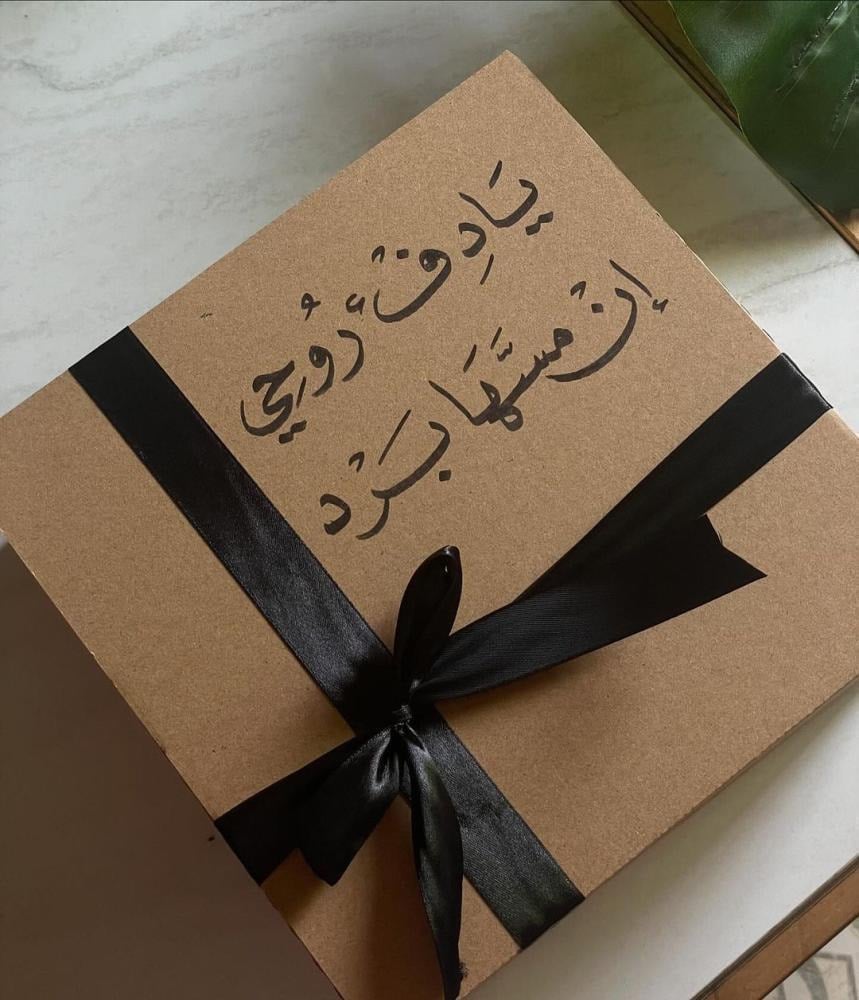 يَا دِفْء رُوُحِي
إنْ مسَّهَا بَرْد